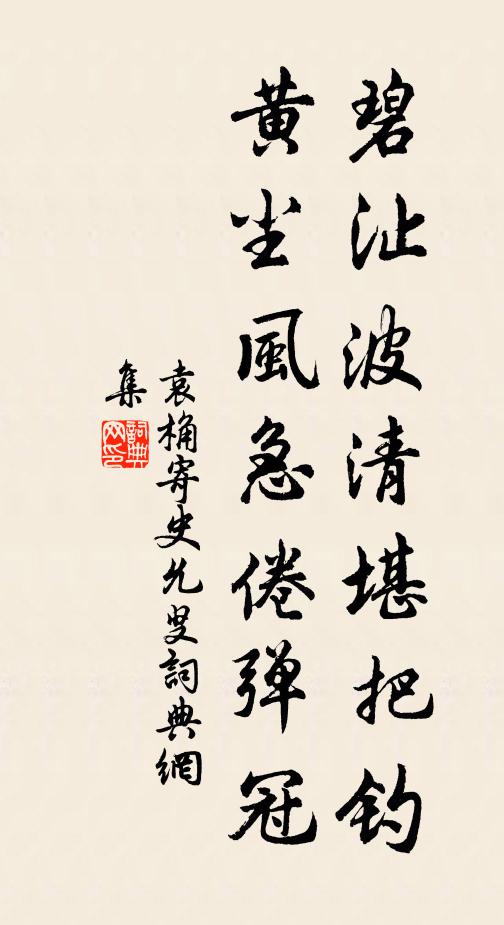 碧沚波清堪把钓
黄尘風急倦弹冠
袁桷寄史允叟詞典網
集
詞典网印